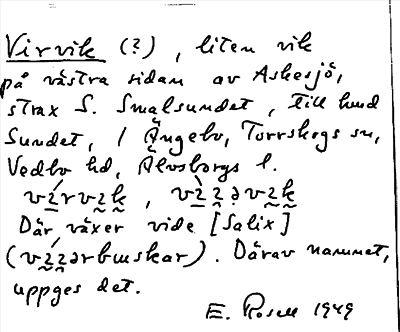 Virvik (?), liten vik
på västra sidan av Askesjö,
strax S. Smalsundet, till hund
Sundet, / Ängebo, Torrskogs sn,
Vedbo hd, Älvsborgs l.
Där växer vide [Salix]
Därav namnet,
uppges det.
E. Rosell 1949